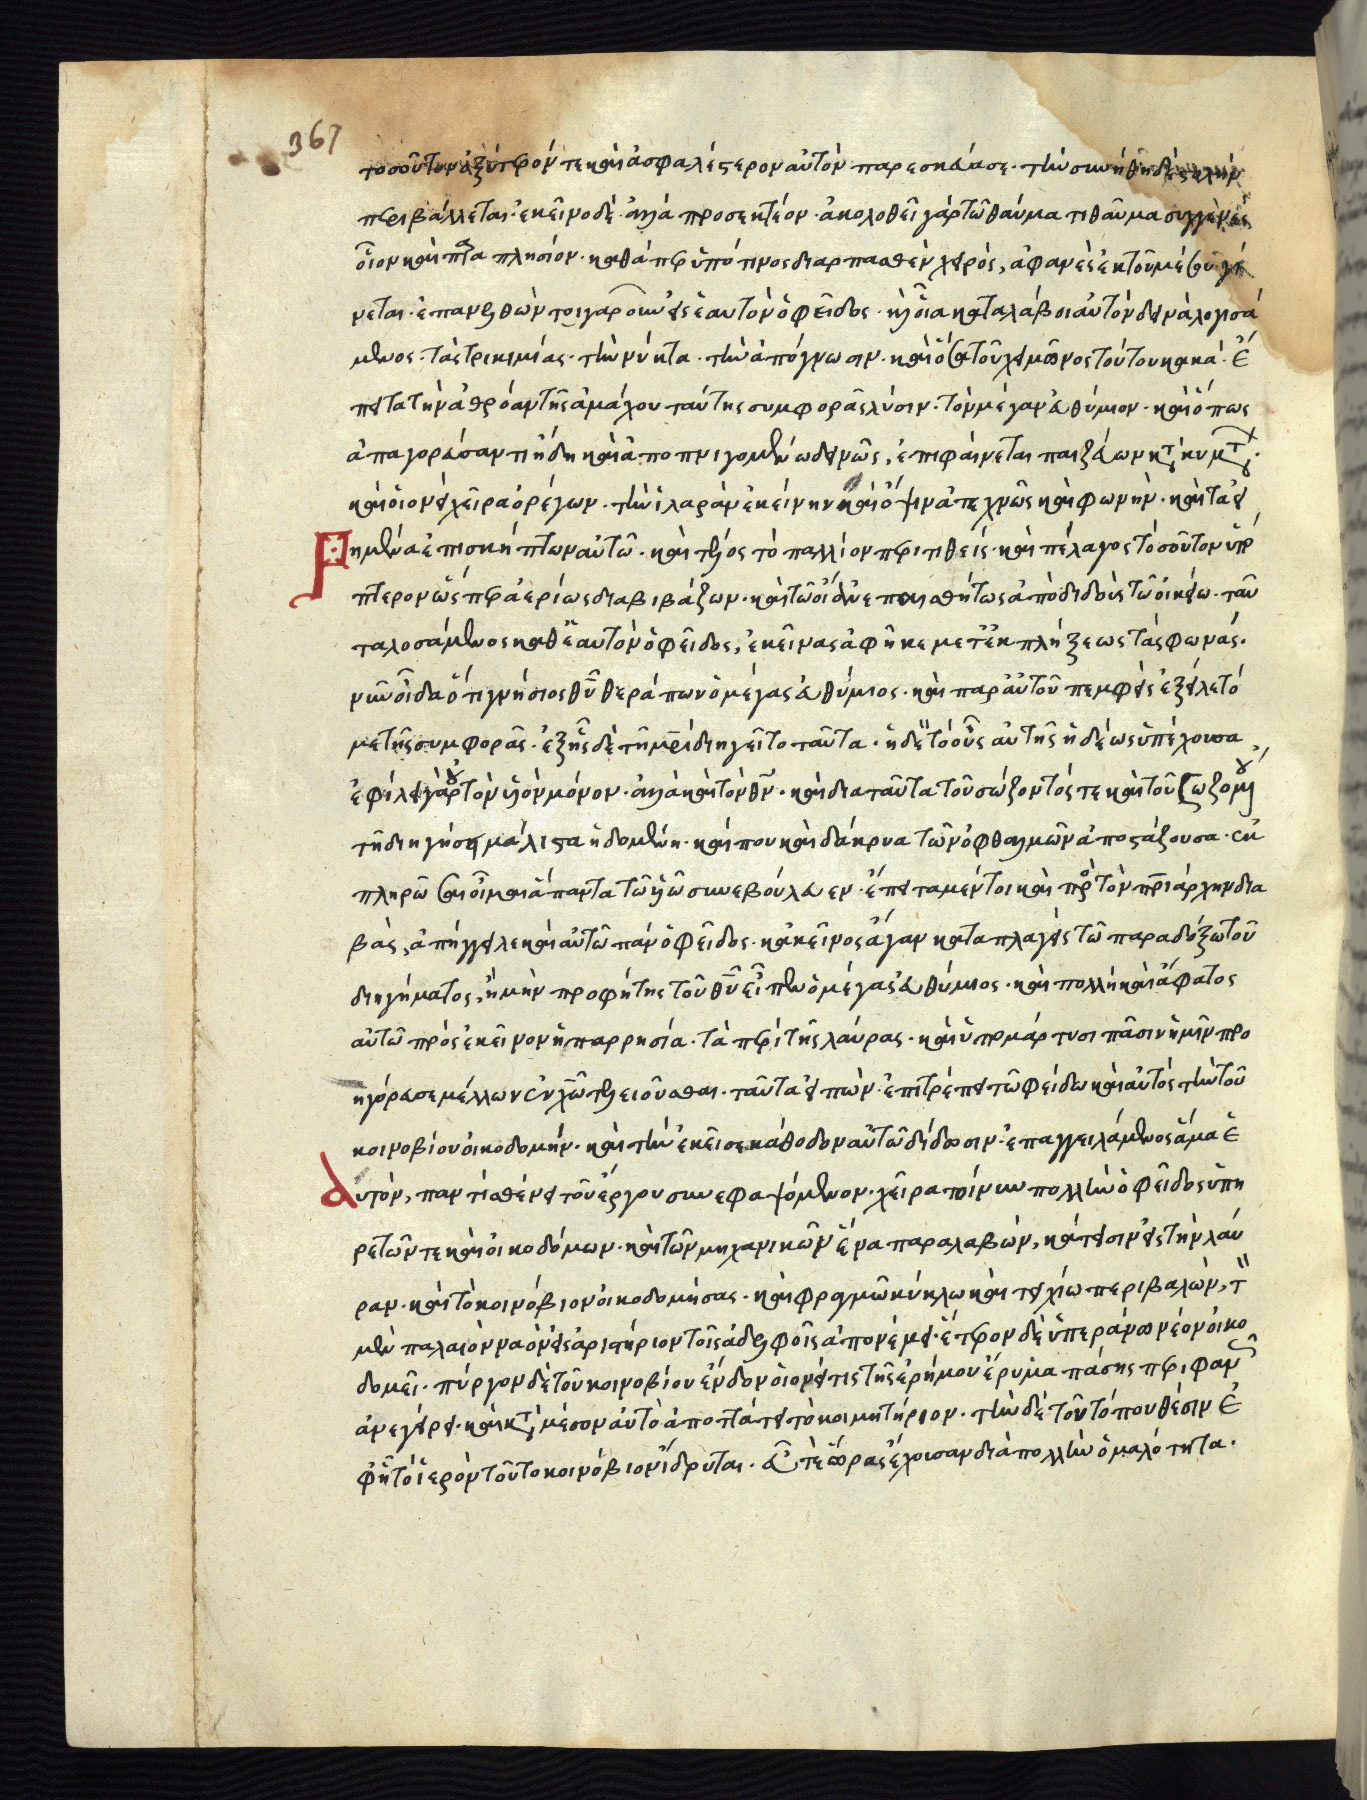 367
τοσοῦτον ὀξύτερόν τε καὶ ἀσφαλέστερον αὐτὸν παρεσκεύασε· τὴν συνήθη δὲ
περιβάλλεται· ἐκεῖνο δὲ ἀλλὰ προσεκτέον· ἀκολοθεῖ γὰρ τῶ θαύματι θαῦμα συγγενές
οἷον καὶ πλησίον· καθάπερ ὑπό τινος διαρπασθὲν χειρός, ἀφανὲς ἐκ τοῦ μέσου γί
νεται· ἐπανελθὼν τοιγαροῦν εἰς ἑαυτὸν ὁ φεῖδος· καὶ οἷα καταλάβοι αὐτὸν δεινὰ λογισά
μενος· τὰς τρικυμίας· τὴν νύκτα· τὴν ἀπόγνωσιν· καὶ ὅσα τοῦ χειμῶνος τούτου κακά· ἔ
πειτα τὴν ἀθρόαν τῆς ἀμάχου ταύτης συμφορᾶς λύσιν· τὸν μέγαν εὐθύμιον· καὶ ὅπως
ἀπαγορεύσαντι ἤδη καὶ ἀποπνιγομένω δεινῶς, ἐπιφαίνεται πεζεύων κατὰ κυμάτων·
καὶ οἱονεὶ χεῖρα ὀρέγων· τὴν ἱλαρὰν ἐκείνην καὶ ὄψιν ἀτεχνῶς καὶ φωνὴν· καὶ τὰ εἰ
ρημένα ἐπισκήπτων αὐτῶ· καὶ τέλος τὸ παλλίον περιτιθείς· καὶ πέλαγος τοσοῦτον ὑπό
πτερον ὥσπερ ἀερίως διαβιβάζων· καὶ τῶ οἴκω ἀνεπαισθήτως ἀποδιδοὺς τῶ οἰκείω· ταῦ
τα λοσάμενος καθ' ἑαυτὸν ὁ φεῖδος, ἐκείνας ἀφῆκε μετ' ἐκπλήξεως τὰς φωνάς·
νῦν οἶδα ὅτι γνήσιος θῦ θεράπων ὁ μέγας εὐθύμιος· καὶ παρ' αὐτοῦ πεμφθεὶς ἐξείλετό
με τῆς συμφορᾶς· ἑξῆς δὲ τῆ μρίδιηγεῖτο ταῦτα· ἡ δὲ τὸ οὖς αὐτῆς ἡδέως ὑπέχουσα
ἐφίλει γὰρ οὐ τὸν υἱὸν μόνον· ἀλλὰ καὶ τὸν θν· καὶ διὰ ταῦτα τοῦ σώζοντός τε καὶ τοῦ σωζομένου
τῆ διηγήσει μάλιστα ἡδομένη· καί που καὶ δάκρυα τῶν ὀφθαλμῶν ἀποστάζουσα· ἐκ
πληρῶσαι οἶμαι ἅπαντα τῶ υἱῶ συνεβούλευεν· ἔπειτα μέντοι καὶ πρὸς τὸν πριάρχην δια
βὰς, ἀπήγγειλε καὶ αὐτῶ πάν ὁ φεῖδος· κἀκεῖνος ἄγαν καταπλαγεὶς τῶ παραδόξω τοῦ
διηγήματος, ἦ μὴν προφήτης τοῦ θῦ εἶπεν ὁ μέγας εὐθύμιος· καὶ πολλὴ καὶ ἄφατος
αὐτῶ πρὸς ἐκεῖνον ἡ παρρησία· τὰ περὶ τῆς λαύρας· καὶ ὑπὸ μάρτυσι πᾶσιν ἡμῖν προ
ηγόρευσε μέλλων ἐν χῶ τελειοῦσθαι· ταῦτα εἰπὼν· ἐπιτρέπει τῶ φείδω καὶ αὐτὸς τὴν τοῦ
κοινοβίου οἰκοδομήν· καὶ τὴν ἐκεῖσε κάθοδον αὐτῶ δίδωσιν· ἐπαγγειλάμενος ἅμα ἑ
αυτόν, παντὶ σθένει τοῦ ἔργου συνεφαψόμενον· χεῖρα τοίνυν πολλὴν ὁ φεῖδος ὑπη
ρετῶν τε καὶ οἰκοδόμων· καὶ τῶν μηχανικῶν ἕνα παραλαβών, κάτεισιν εἰς τὴν λαύ
ραν· καὶ τὸ κοινόβιον οἰκοδομήσας· καὶ φραγμῶ κύκλω καὶ τειχίω περιβαλών, τὸν
μὲν παλαιὸν ναὸν εἰς ἀριστήριον τοῖς ἀδελφοῖς ἀπονέμει· ἕτερον δὲ ὑπεράνω νέον οἰκο
δομεῖ· πύργον δὲ τοῦ κοινοβίου ἔνδον οἱονεί τι τῆς ἐρήμου ἔρυμα πάσης περιφανῶς
ἀνεγείρει· καὶ κατὰ μέσον αὐτὸ ἀποτάττει τὸ κοιμητήριον· τὴν δὲ τοῦ τόπου θέσιν ἐ
φ' ἧ τὸ ἱερὸν τοῦτο κοινόβιον ἵδρυται· εὖ τε ὥρας ἔχοισαν διὰ πολλὴν ὁμαλότητα·